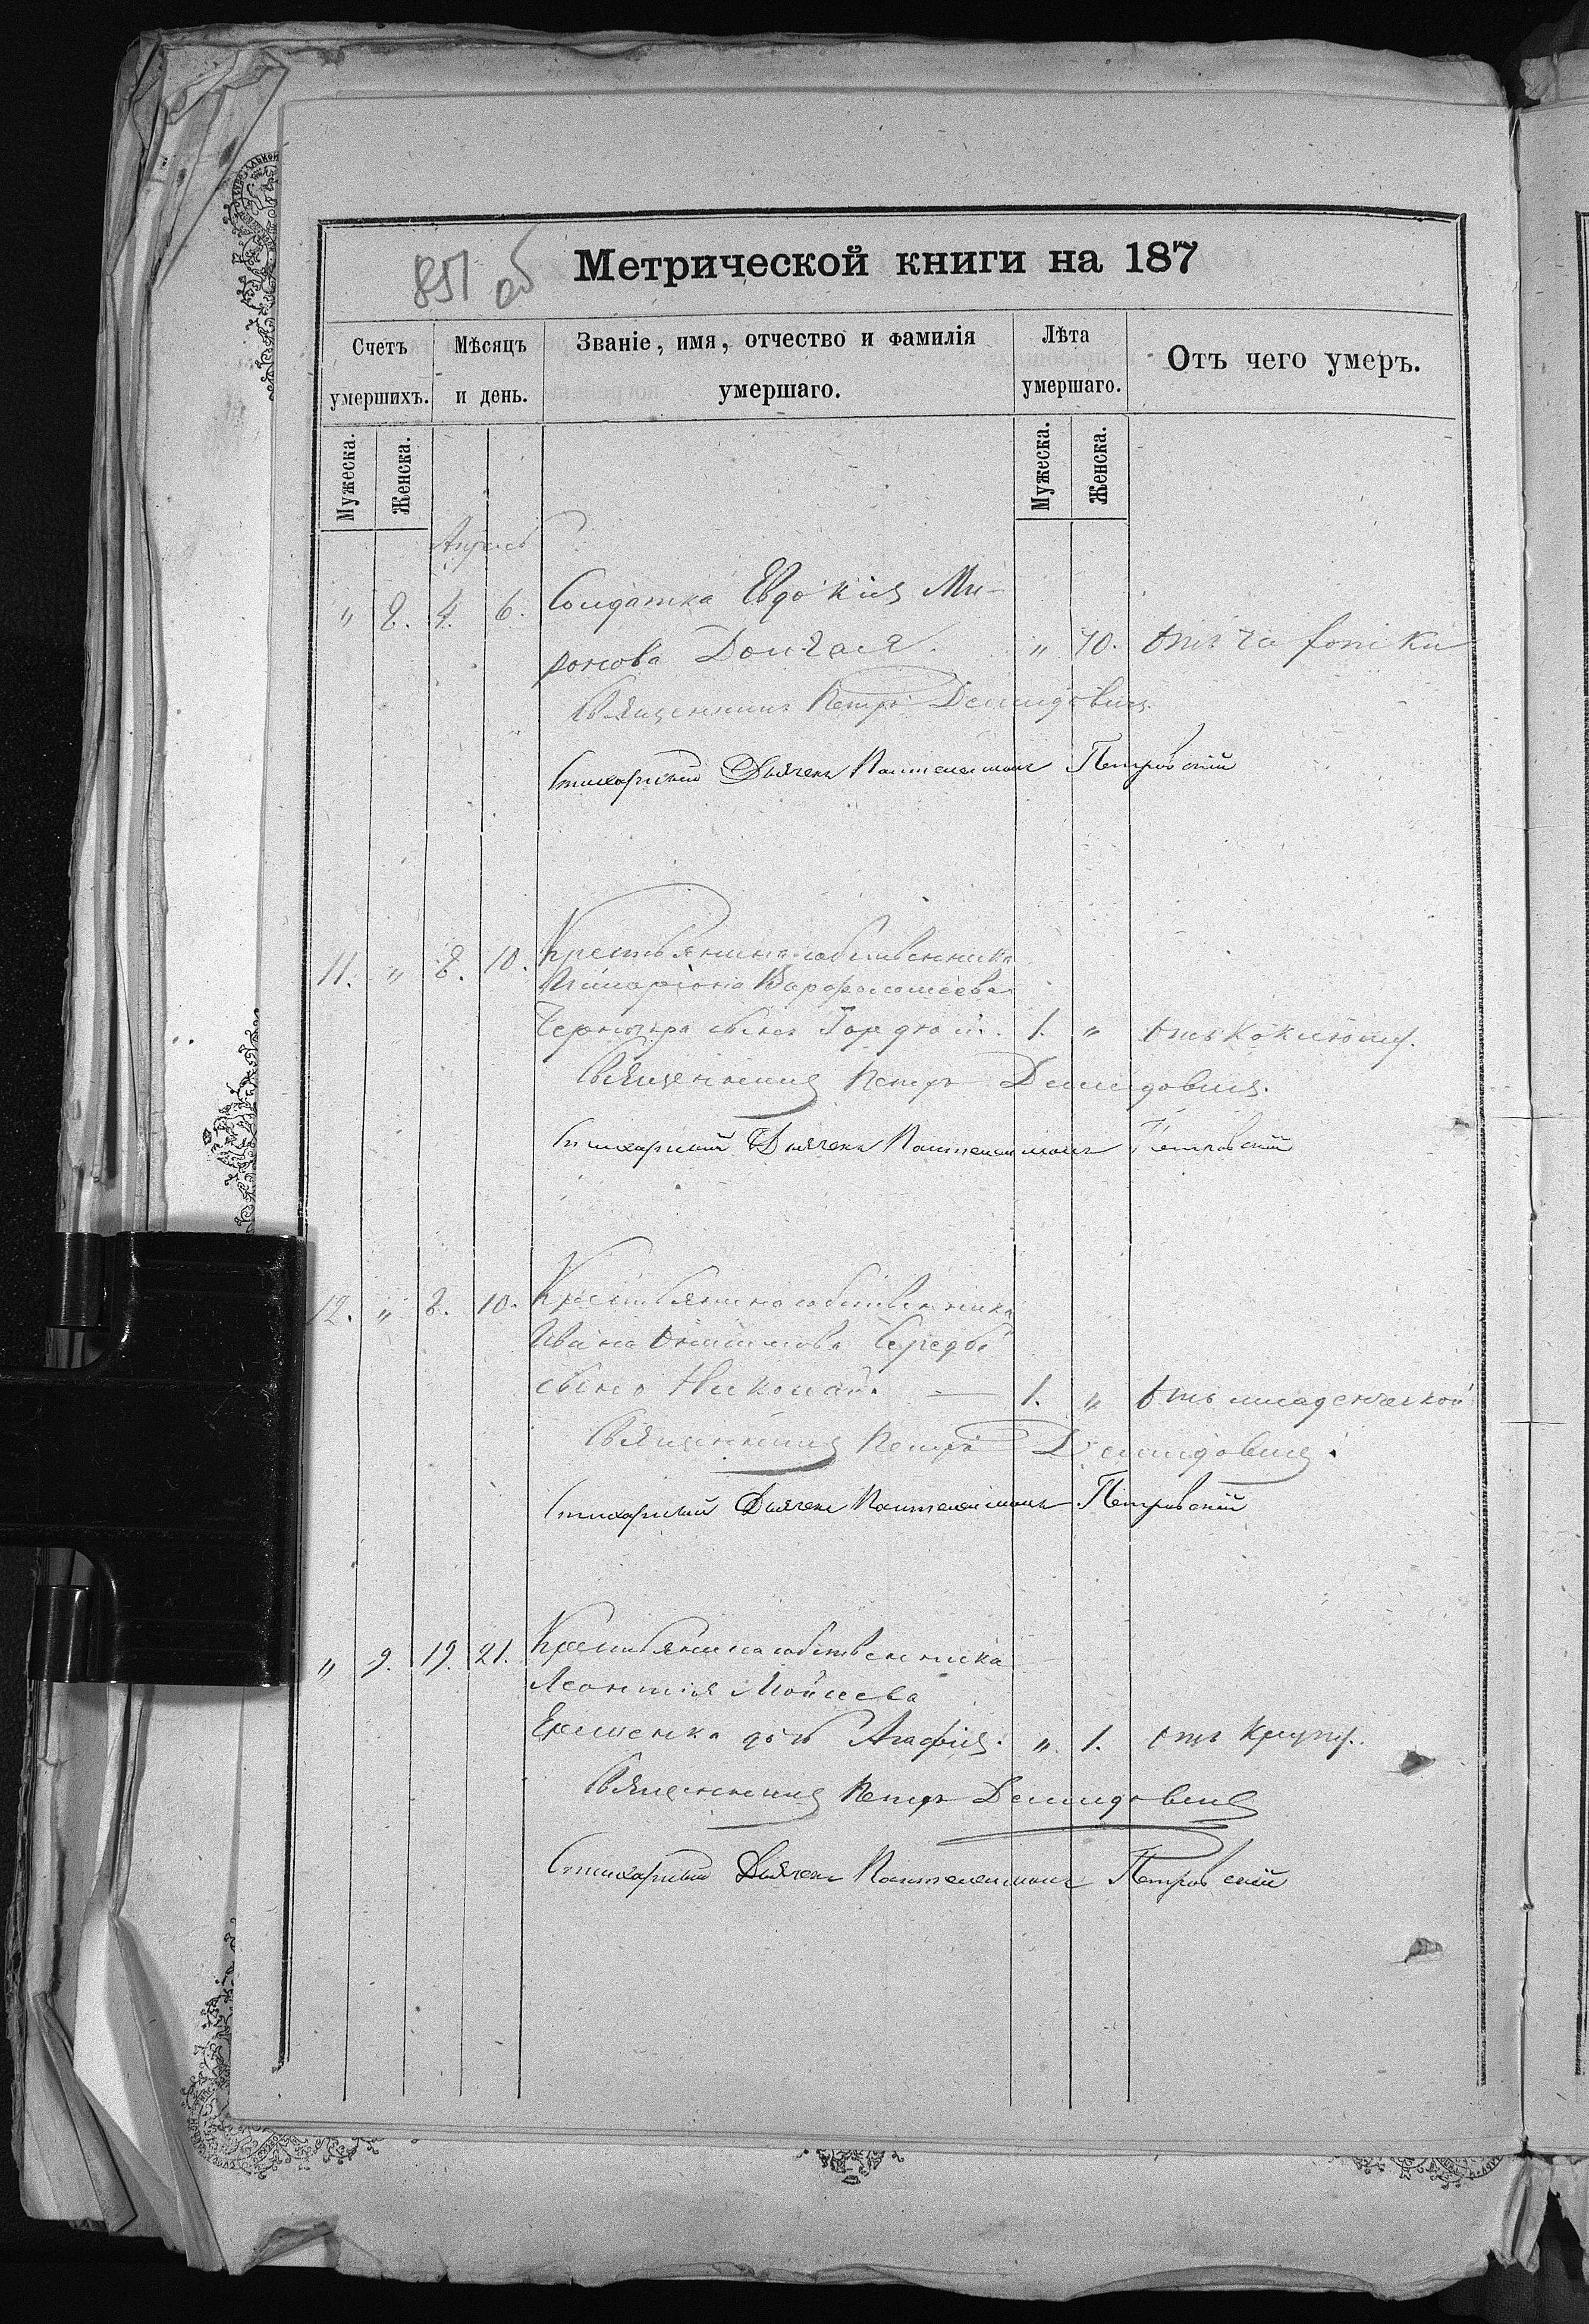 851 об
Метрической книги на 187
Счетъ умершихъ.
Мѣсяцъ и день.
Званіе, имя, отчество и фамилія умершаго.
Лѣта умершаго.
Отъ чего умеръ.
Мужеска.
Женска.
Мужеска.
Женска.
Апрель
" 8. 4. 6. Солдатка Евдокія Ми-
ронова Долгая. " 70. Отъ чахотки
Священникъ Петръ Демидовичъ
Стихарный Дьячекъ Пантелеимонъ Петровскій
11. " 8. 10. Крестьянина собственника
Иларіона Варфоломеева
сынъ Гордій. 1. " Отъ коклюшу.
Священникъ Петръ Демидовичъ.
Стихарный Дьячекъ Пантелеимонъ Петровскій
12. " 8. 10. Крестьянина собственника
Ивана Середы
сынъ Николай. — 1. " Отъ младенческой
Священникъ Петръ Демидовичъ.
Стихарный Дьячекъ Пантелеимонъ Петровскій
" 9. 19. 21. Крестьянина собственника
Леонтія Мойсеева
дочь Агафія. " 1. Отъ крупу.
Священникъ Петръ Демидовичъ
Стихарный Дьячекъ Пантелеимонъ Петровскій